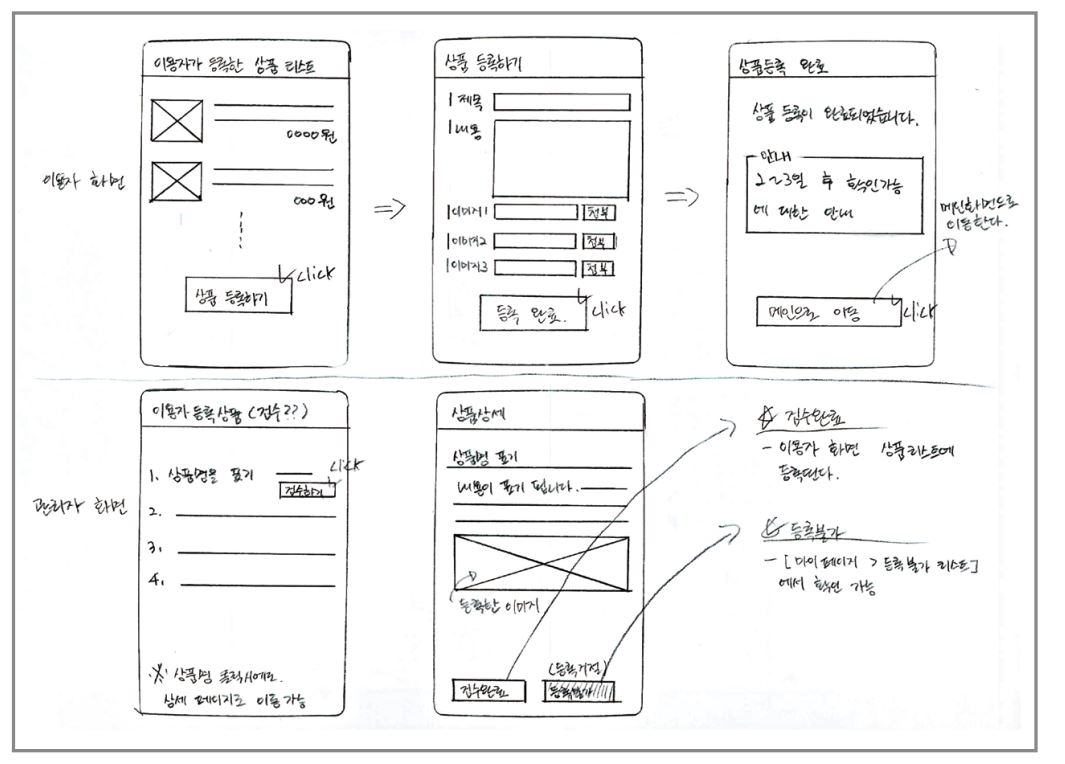 이용자 화면
이용자가 등록한 상품 리스트
0000원
000원
click
상품 등록하기
상품 등록하기
제목
내용
이미지1
첨부
이미지2
첨부
이미지3
첨부
등록 완료.
click
상품등록 완료
상품 등록이 완료되었습니다.
안내
2~3일 후 확인가능
에 대한 안내
메인화면으로
이동한다.
메인으로 이동
click
관리자 화면
이용자 등록상품 (접수??)
1. 상품명을 표기
click
접수하기
2.
3.
4.
※ 상품명 클릭시에도
상세 페이지로 이동 가능
상품상세
상품명 표기
내용이 표기 됩니다.
등록한 이미지
(등록거절)
접수완료
등록불가
☆ 접수완료
- 이용자 화면 상품리스트에
등록된다.
☆ 등록불가
- [마이페이지 > 등록불가 리스트]
에서 확인 가능